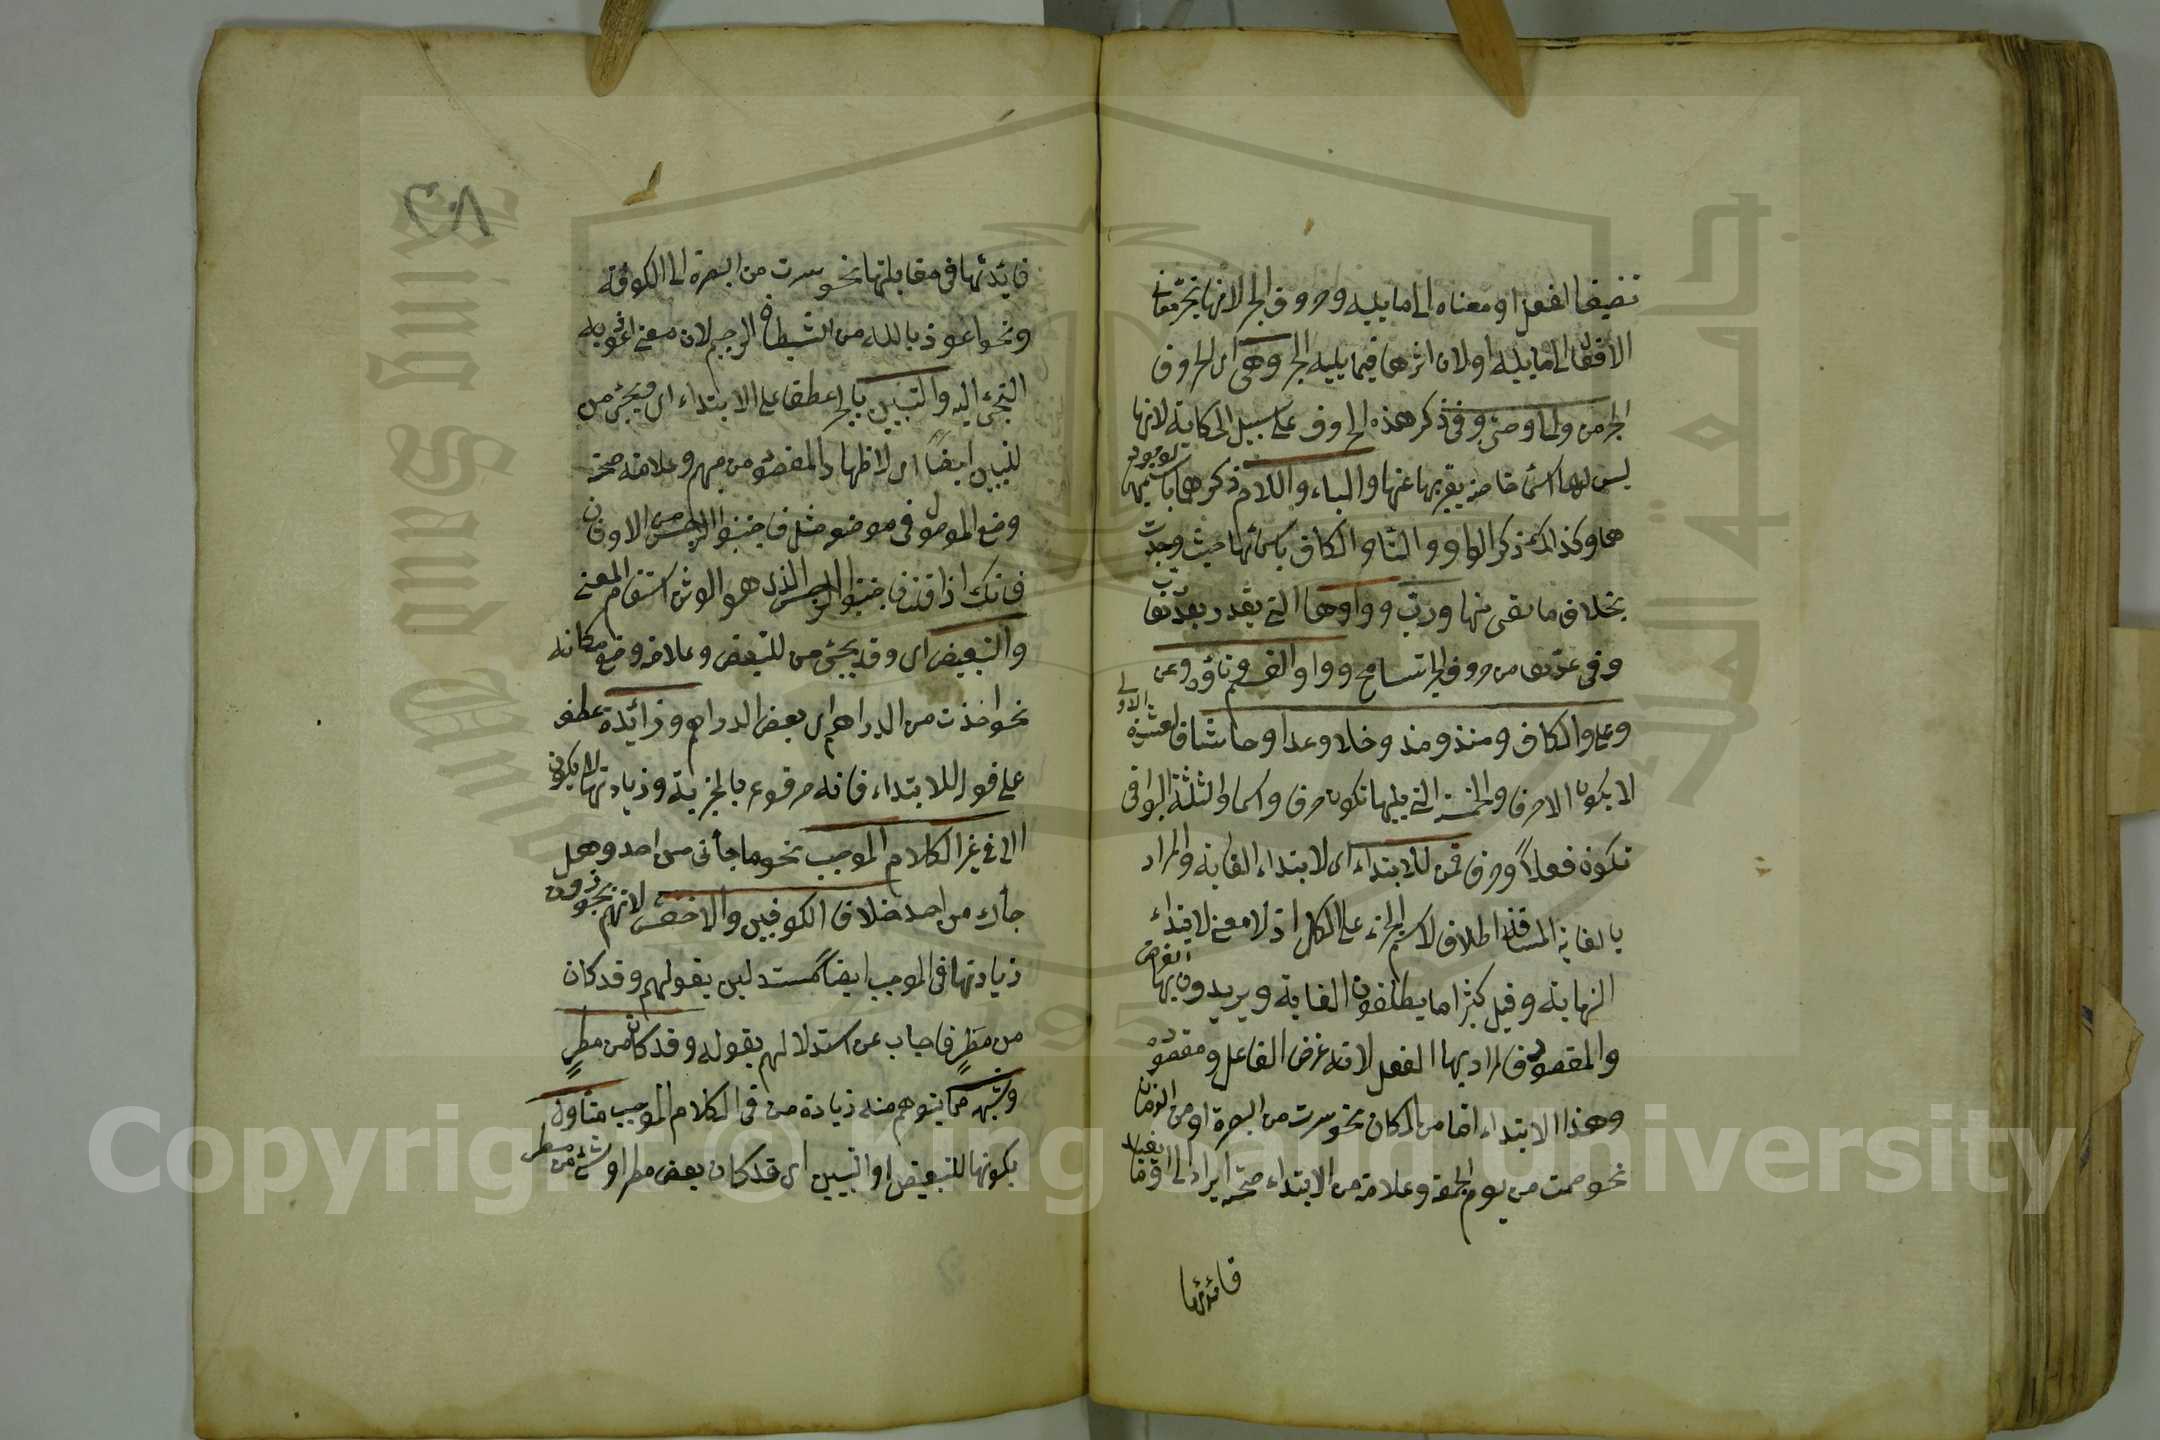 تضيفها الفعل او معناه الى ما يليه وحروف الجر لانها تجر معانى
الافعال الى ما يليه او لان اثرها فيما يليه الجر وهى اى الحروف
الجر من والى وحتى وفى ذكر هذه الحروف على سبيل الحكاية لانها
ليس لها اسماء خاصة يعبر بها عنها والباء واللام ذكرها باسميهما لوجود
هما وكذا ذكر الواو والتا والكاف باسمائها حيث وجدت
بخلاف ما بقى منها ورب وواوها التى يقدر بعد رب
وفى عدها من حروف الجر تسامح وواو القسم وتاؤه وعن
وعلى والكاف ومنذ ومذ وخلا وعدا وحاشا فالعشرة الاولى
لا يكون الا حرفا والخمسة التى يليها تكون حرفا واسما والثلثة البواقى
تكون فعلا وحرفا فمن للابتداء اى لابتداء الغاية والمراد
بالغاية المسافة اطلاق لاسم الجزء على الكل اذ لا معنى لابتداء
النهاية وقيل كثيرا ما يطلقون الغاية ويريدون بها الغرض
والمقصود فالمراد بها الفعل لانه غرض الفاعل ومقصوده
وهذا الابتداء اما من المكان نحو سرت من البصرة او من الزمان
نحو صمت من يوم الجمعة وعلامة من الابتداء صحة ايراد الى او ما يفيد
فائدتها
٢٠٨
فائدتها فى مقابلتها نحو سرت من البصرة الى الكوفة
ونحو اعوذ بالله من الشيطان الرجيم لان معنى اعوذ به
التجئ اليه والتبيين بالجر عطفا على الابتداء اى ويجئ من
للتبيين ايضا اى لاظهار المقصود من مبهم وعلامته صحة
وضع الموصول فى موضعه مثل فاجتنبوا الرجس من الاوثان
فانك اذا قلت فاجتنبوا الرجس الذى هو الوثن استقام المعنى
والتبعيض اى وقد يجئ من للتبعيض وعلامته وضع مكانه
نحو اخذت من الدراهم اى بعض الدراهم وزائدة عطف
على قوله للابتداء فانه مرفوع بالخبرية وزيادتها لا يكون
الا فى غير الكلام الموجب نحو ما جأنى من احد وهل
جأك من احد خلافا للكوفيين والاخفش لانهم يجوزون
زيادتها فى الموجب ايضا مستدلين بقولهم وقد كان
من مطر فاجاب عن استدلالهم بقوله وقد كان من مطر
وشبهه مما يتوهم منه زيادة من فى الكلام الموجب متاول
بكونها للتبعيض او التبيين اى قد كان بعض مطر او شئ من مطر
Copyright © King Saud University
جامعة الملك سعود
King Saud University
1957